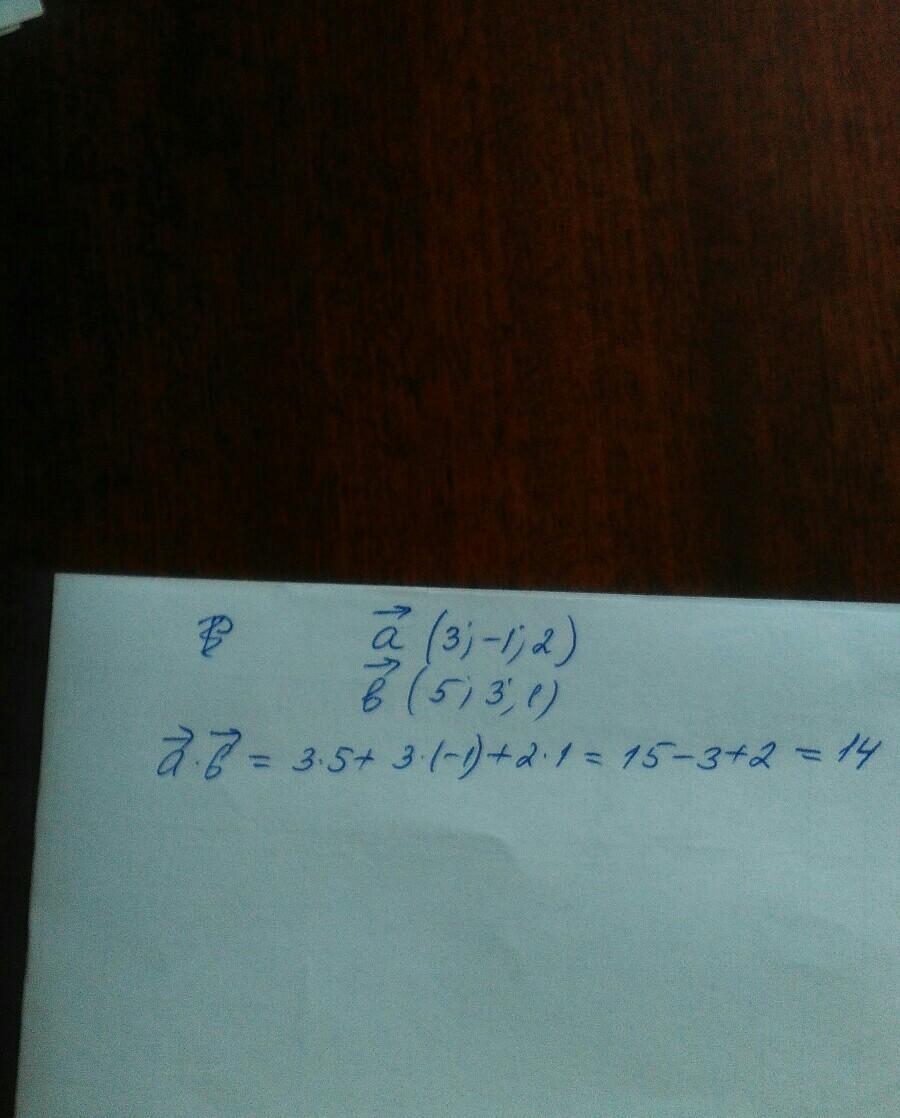 a⃗ (3; -1; 2)
b⃗ (5; 3; 1)
a⃗ · b⃗ = 3·5 + 3·(-1) + 2·1 = 15 - 3 + 2 = 14